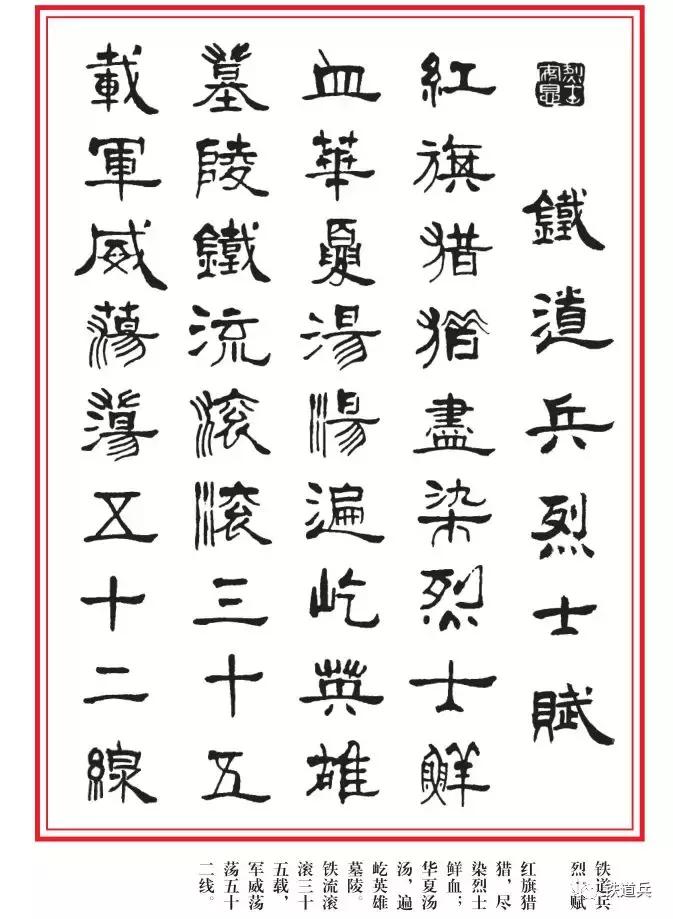 鐵道兵烈士賦
紅旗猎猎盡染烈士鮮
血華夏湯湯遍屹英雄
墓陵鐵流滚滚三十五
載軍威蕩蕩五十二線
铁道兵
烈士赋
红旗猎
猎，尽
染烈士
鲜血；
华夏汤
汤，遍
屹英雄
墓陵。
铁流滚
滚三十
五载，
军威荡
荡五十
二线。
铁道兵